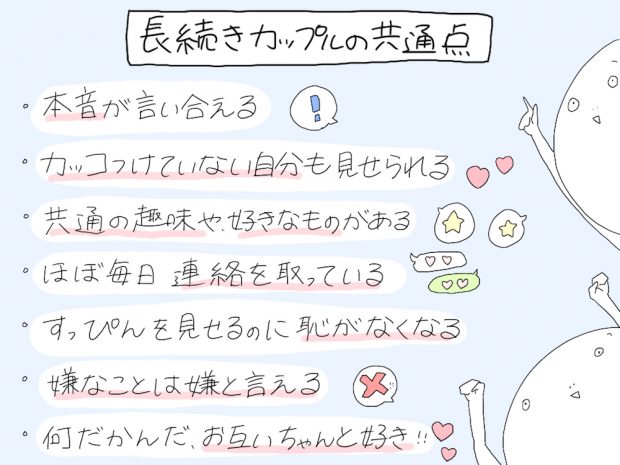 長続きカップルの共通点
・本音が言い合える
・カッコつけていない自分も見せられる
・共通の趣味や、好きなものがある
・ほぼ毎日 連絡を取っている
・すっぴんを見せるのに恥がなくなる
・嫌なことは嫌と言える
・何だかんだ、お互いちゃんと好き!!